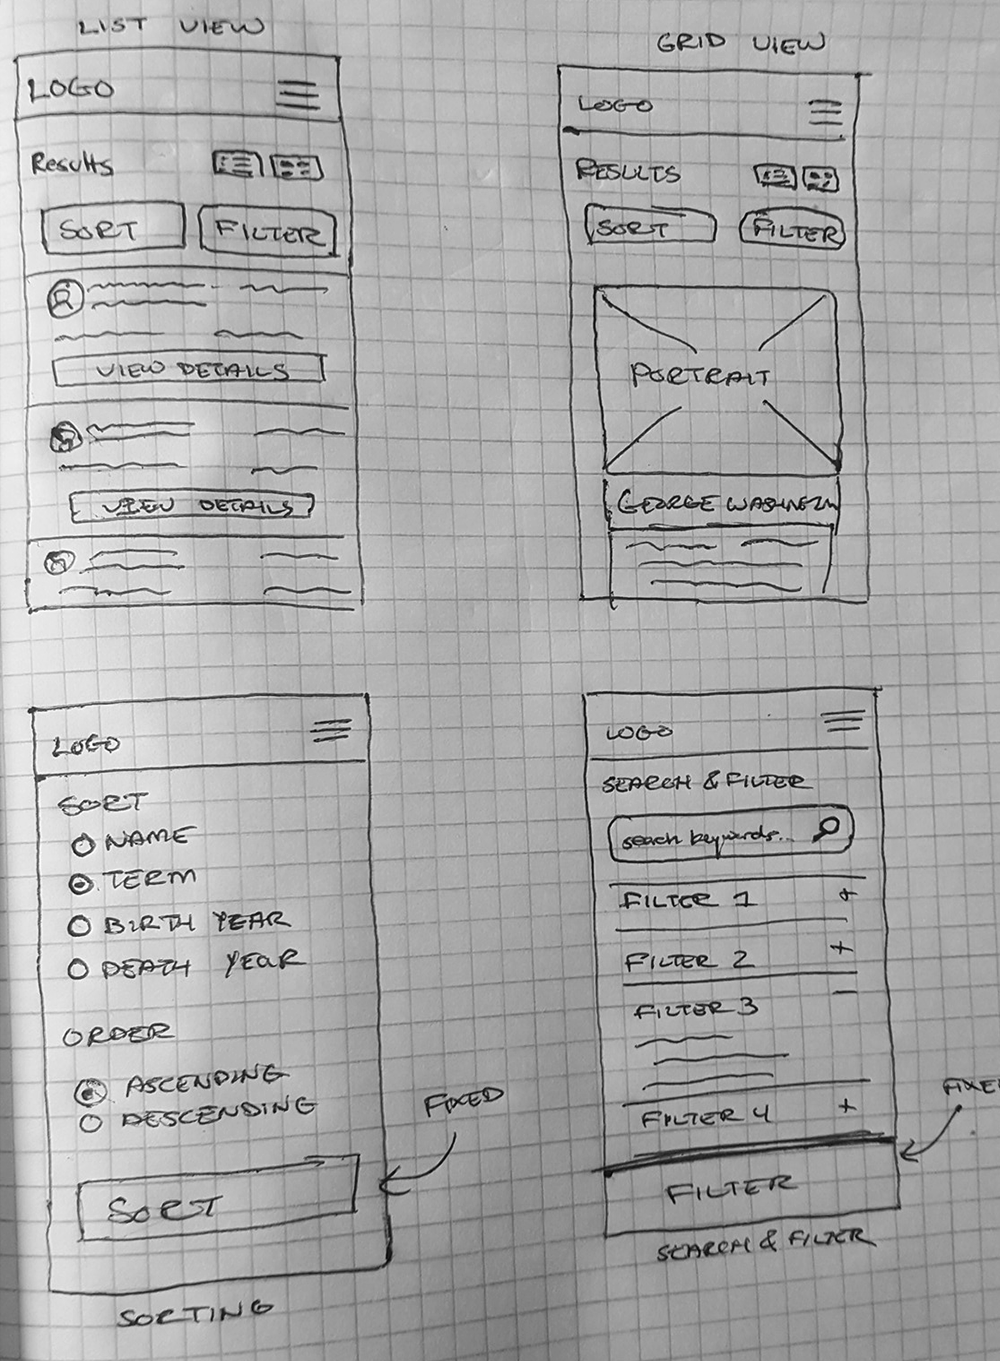 LIST VIEW
LOGO
Results
SORT
FILTER
VIEW DETAILS
VIEW DETAILS
GRID VIEW
LOGO
RESULTS
SORT
FILTER
PORTRAIT
GEORGE
LOGO
SORT
NAME
TERM
BIRTH YEAR
DEATH YEAR
ORDER
ASCENDING
DESCENDING
SORT
FIXED
SORTING
LOGO
SEARCH & FILTER
search keywords...
FILTER 1 +
FILTER 2 +
FILTER 3 −
FILTER 4 +
FILTER
FIXE
SEARCH & FILTER